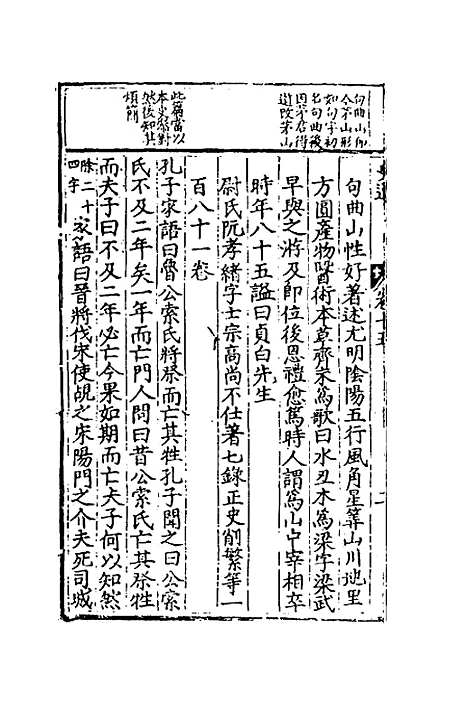 句曲山即
今茅山形
如句字初
名句曲後
因茅君得
道改茅山
此篇當以
本史傳對
然後知其
煩簡
句曲山性好著述尤明陰陽五行風角星筭山川地里
方圓產物醫術本草齊末爲歌曰水丑木爲梁字梁武
早與之游及即位後恩禮愈篤時人謂爲山中宰相卒
時年八十五謚曰貞白先生
尉氏阮孝緒字士宗高尚不仕著七錄正史削繁等一
百八十一卷
孔子家語曰魯公索氏將祭而亡其牲孔子聞之曰公索
氏不及二年矣一年而亡門人問曰昔公索氏亡其祭牲
而夫子曰不及二年必亡今果如期而亡夫子何以知然
除二十
四字
家語曰晉將伐宋使覘之宋陽門之介夫死司城
卷十五
二